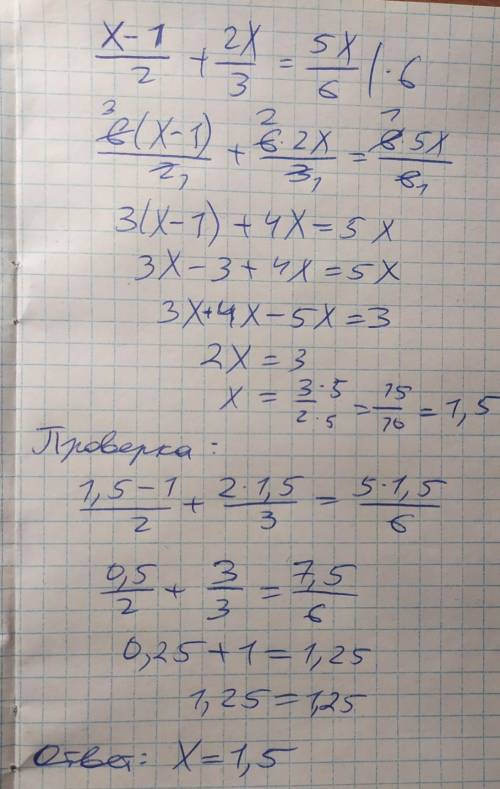 (x-1)/2 + 2x/3 = 5x/6 | · 6
³6(x-1)/2₁ + ²6·2x/3₁ = ¹6·5x/6₁
3(x-1) + 4x = 5x
3x - 3 + 4x = 5x
3x + 4x - 5x = 3
2x = 3
x = 3·5/2·5 = 15/10 = 1,5
Проверка:
(1,5-1)/2 + 2·1,5/3 = 5·1,5/6
0,5/2 + 3/3 = 7,5/6
0,25 + 1 = 1,25
1,25 = 1,25
Ответ: x = 1,5